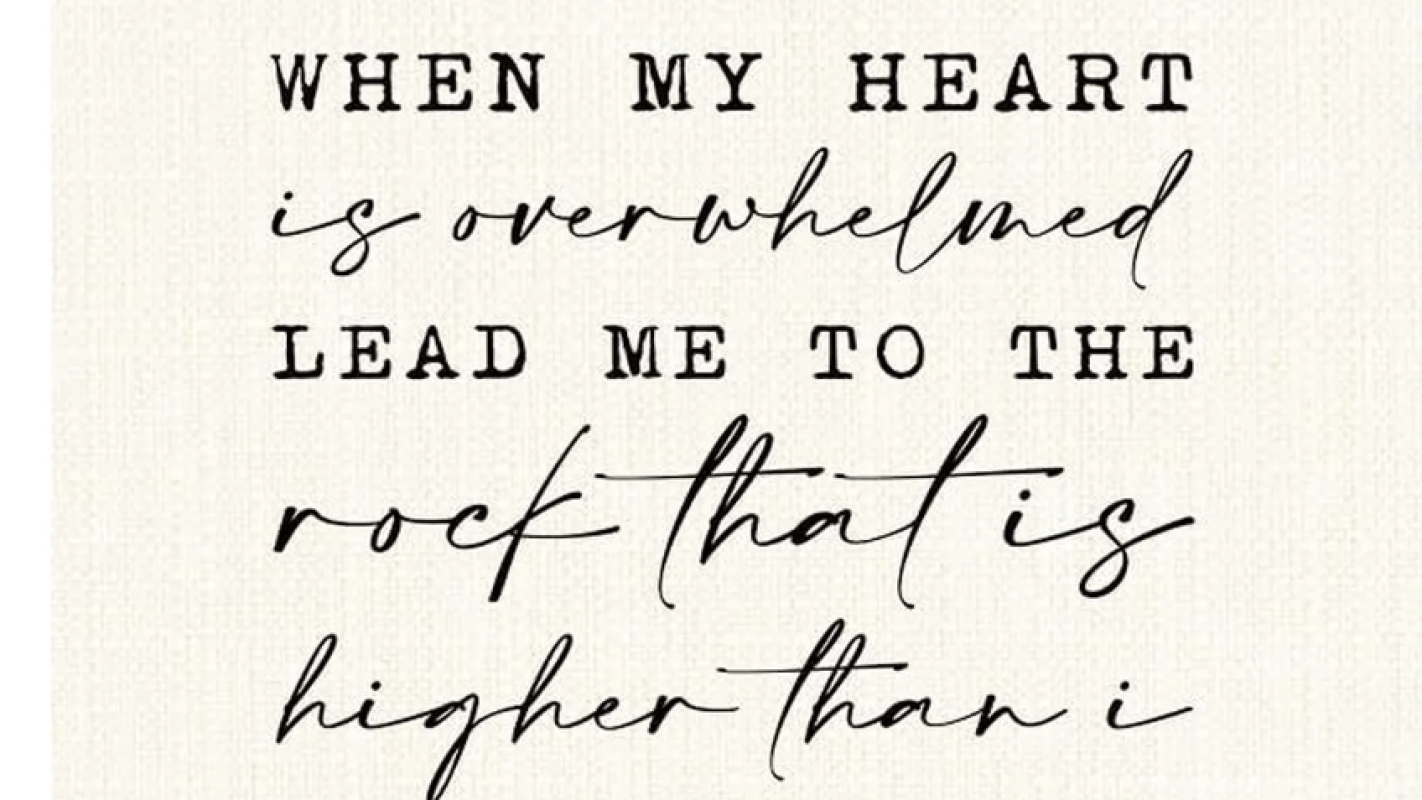 WHEN MY HEART
is overwhelmed
LEAD ME TO THE
rock that is
higher than i